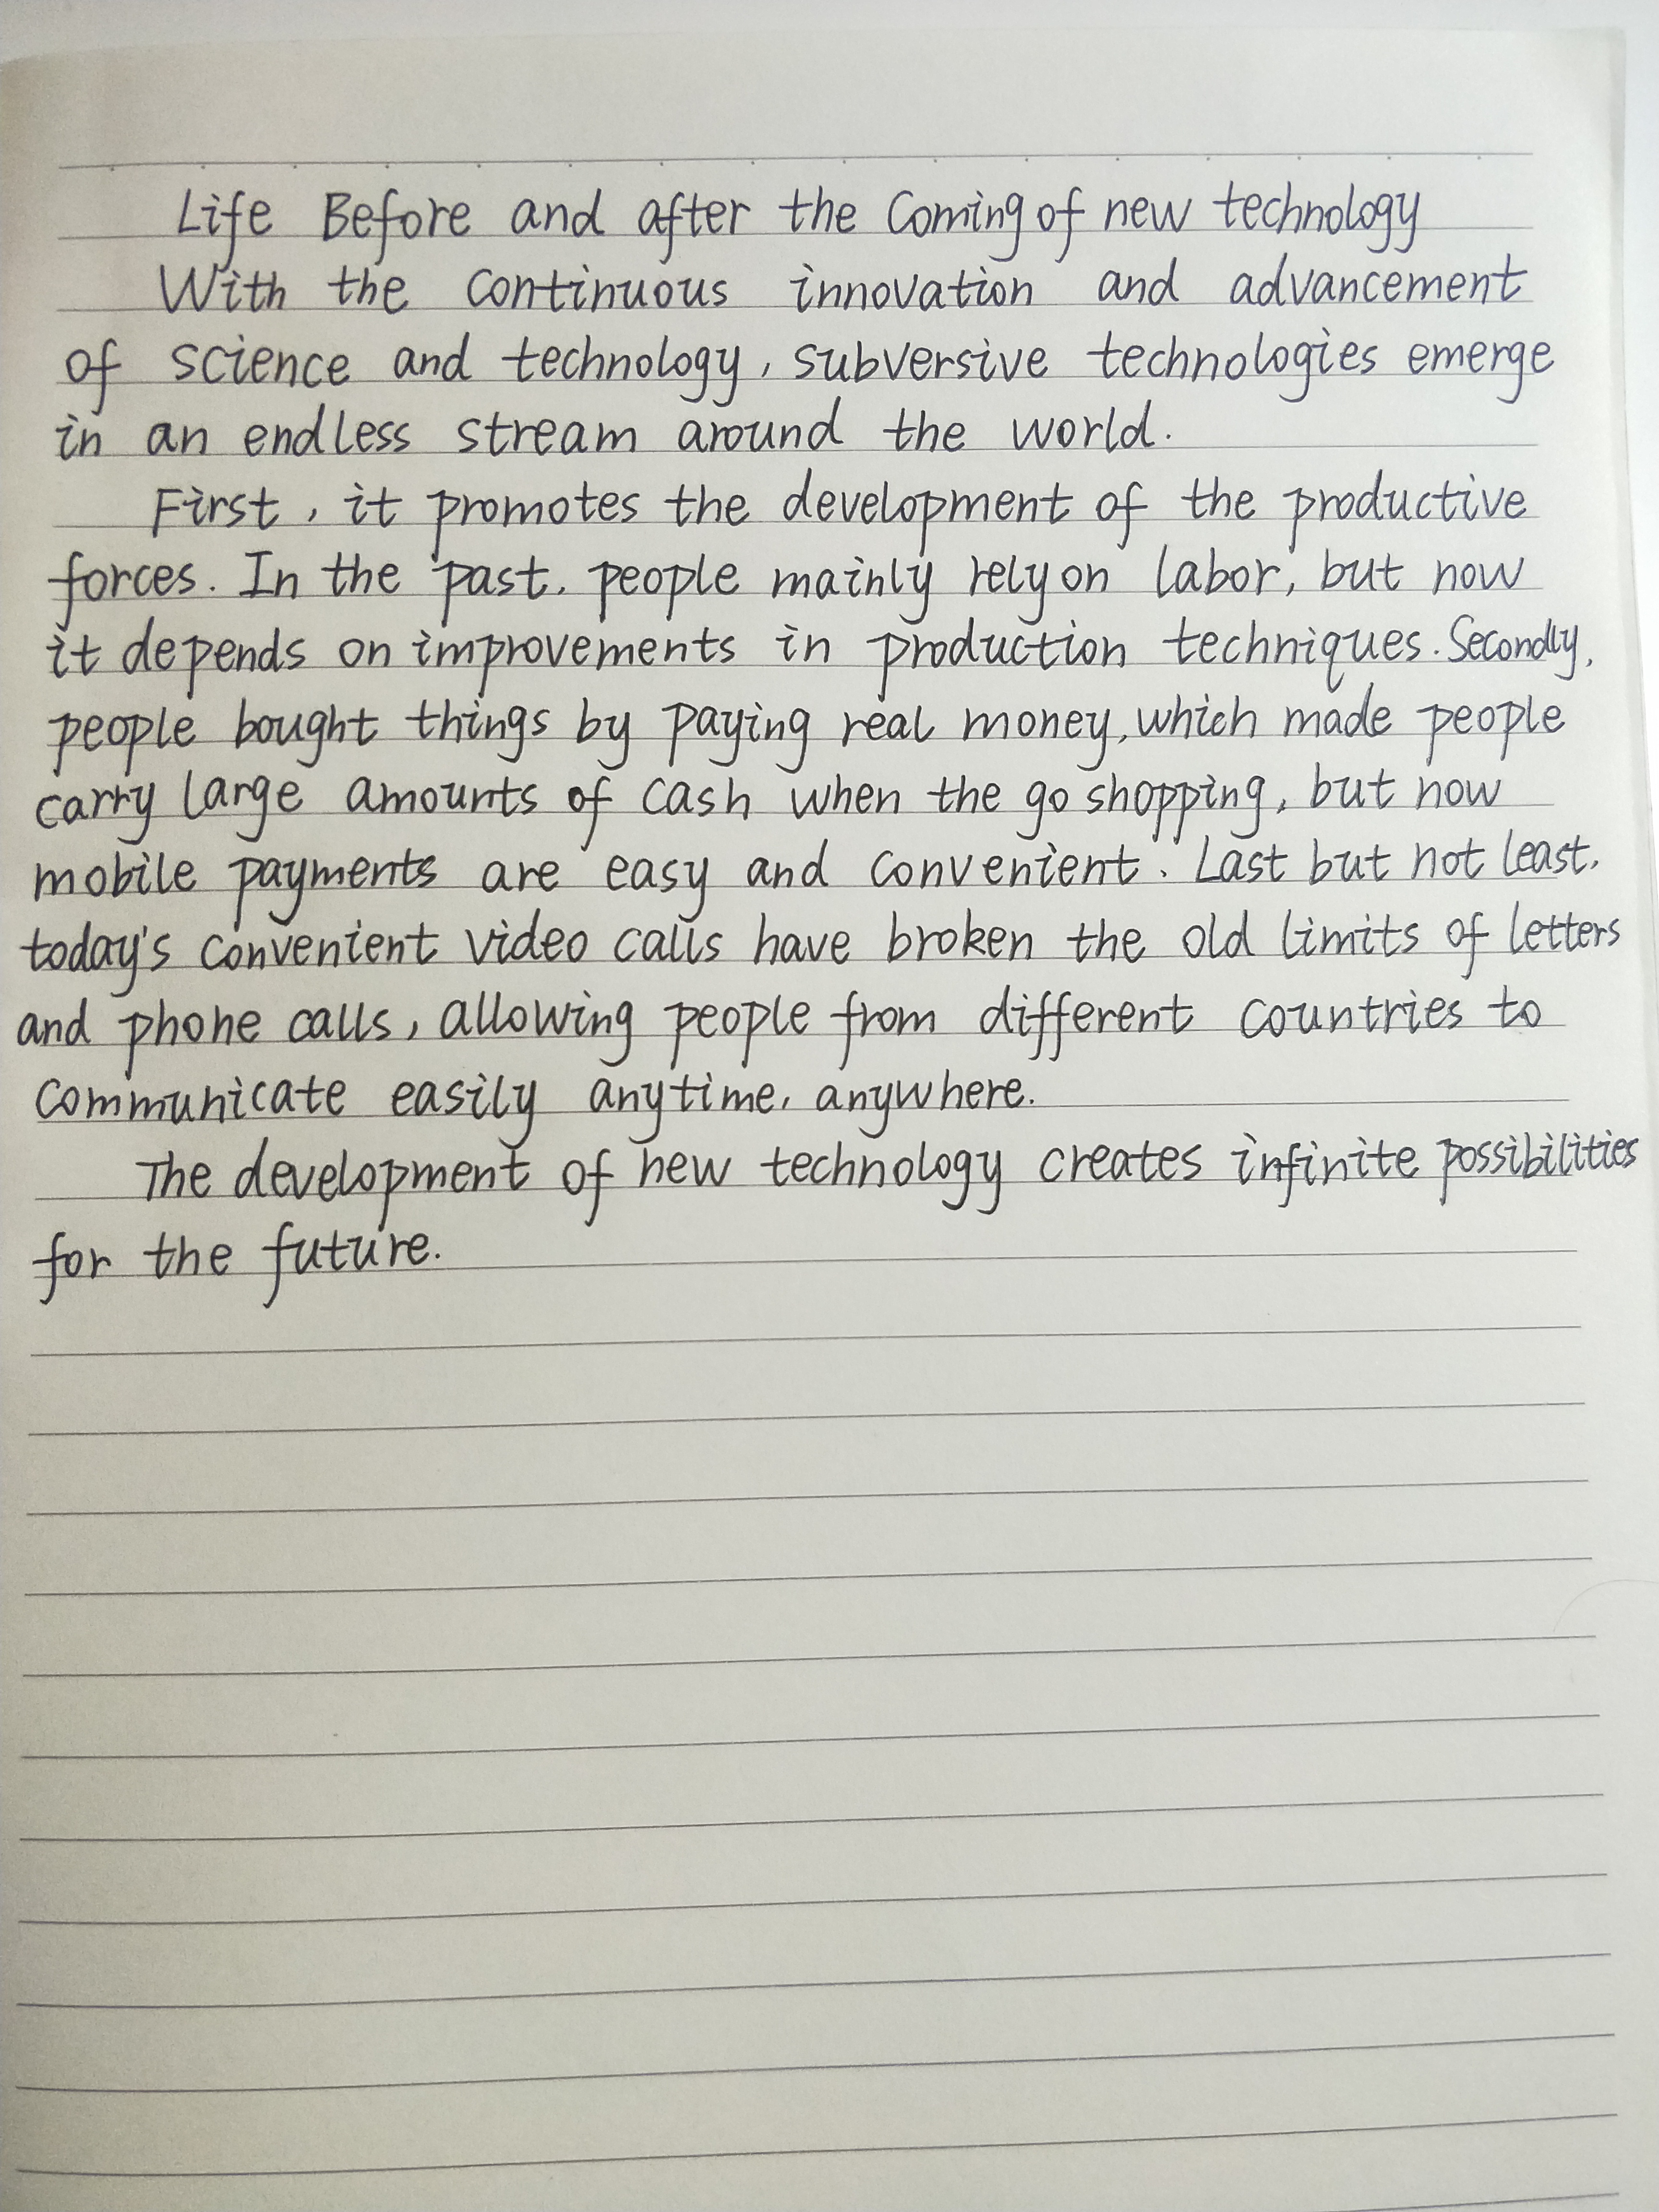 Life Before and after the Coming of new technology
With the continuous innovation and advancement
of science and technology, subversive technologies emerge
in an endless stream around the world.
First, it promotes the development of the productive
forces. In the past, people mainly rely on labor, but now
it depends on improvements in production techniques. Secondly,
people bought things by paying real money, which made people
carry large amounts of cash when the go shopping, but now
mobile payments are easy and convenient. Last but not least,
today's convenient video calls have broken the old limits of letters
and phone calls, allowing people from different countries to
communicate easily anytime, anywhere.
The development of new technology creates infinite possibilities
for the future.